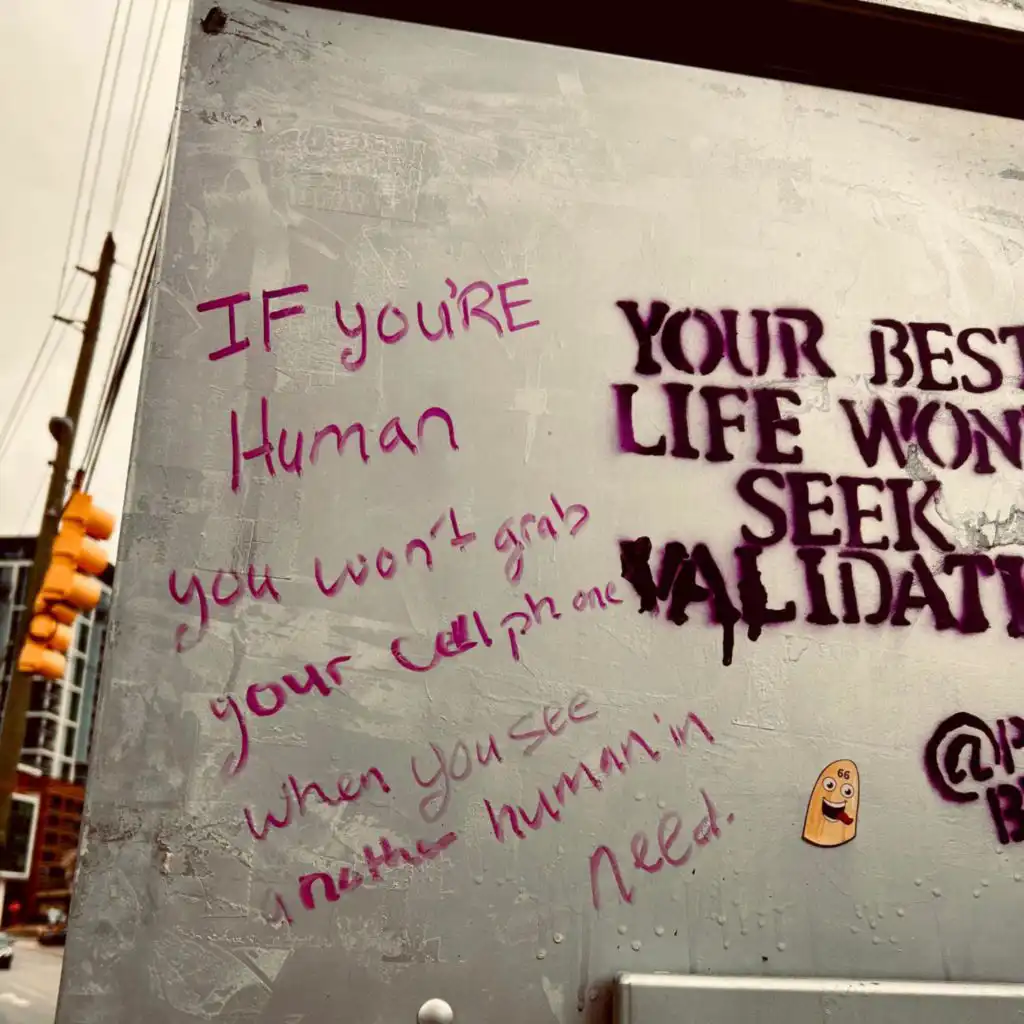 IF YOU'RE
Human
you won't grab
your cellphone
when you see
another human in
need.
YOUR BEST
LIFE WON
SEEK
VALIDATI
@P
B
66